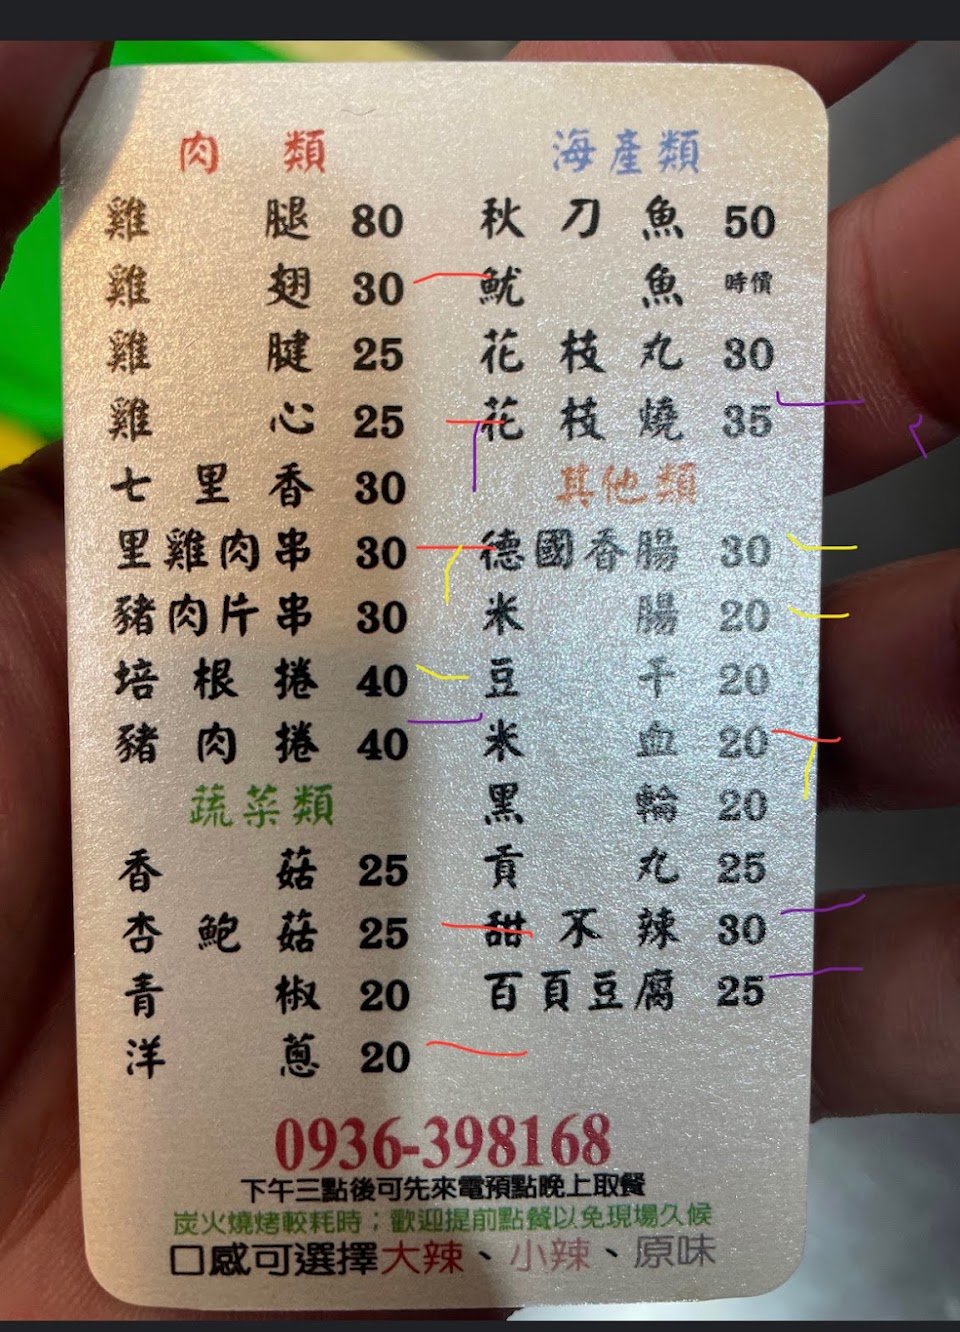 肉類
雞腿 80
雞翅 30
雞腱 25
雞心 25
七里香 30
里雞肉串 30
豬肉片串 30
培根捲 40
豬肉捲 40
蔬菜類
香菇 25
杏鮑菇 25
青椒 20
洋蔥 20
海產類
秋刀魚 50
魷魚 時價
花枝丸 30
花枝燒 35
其他類
德國香腸 30
米腸 20
豆干 20
米血 20
黑輪 20
貢丸 25
甜不辣 30
百頁豆腐 25
0936-398168
下午三點後可先來電預點晚上取餐
炭火燒烤較耗時;歡迎提前點餐以免現場久候
口感可選擇大辣、小辣、原味